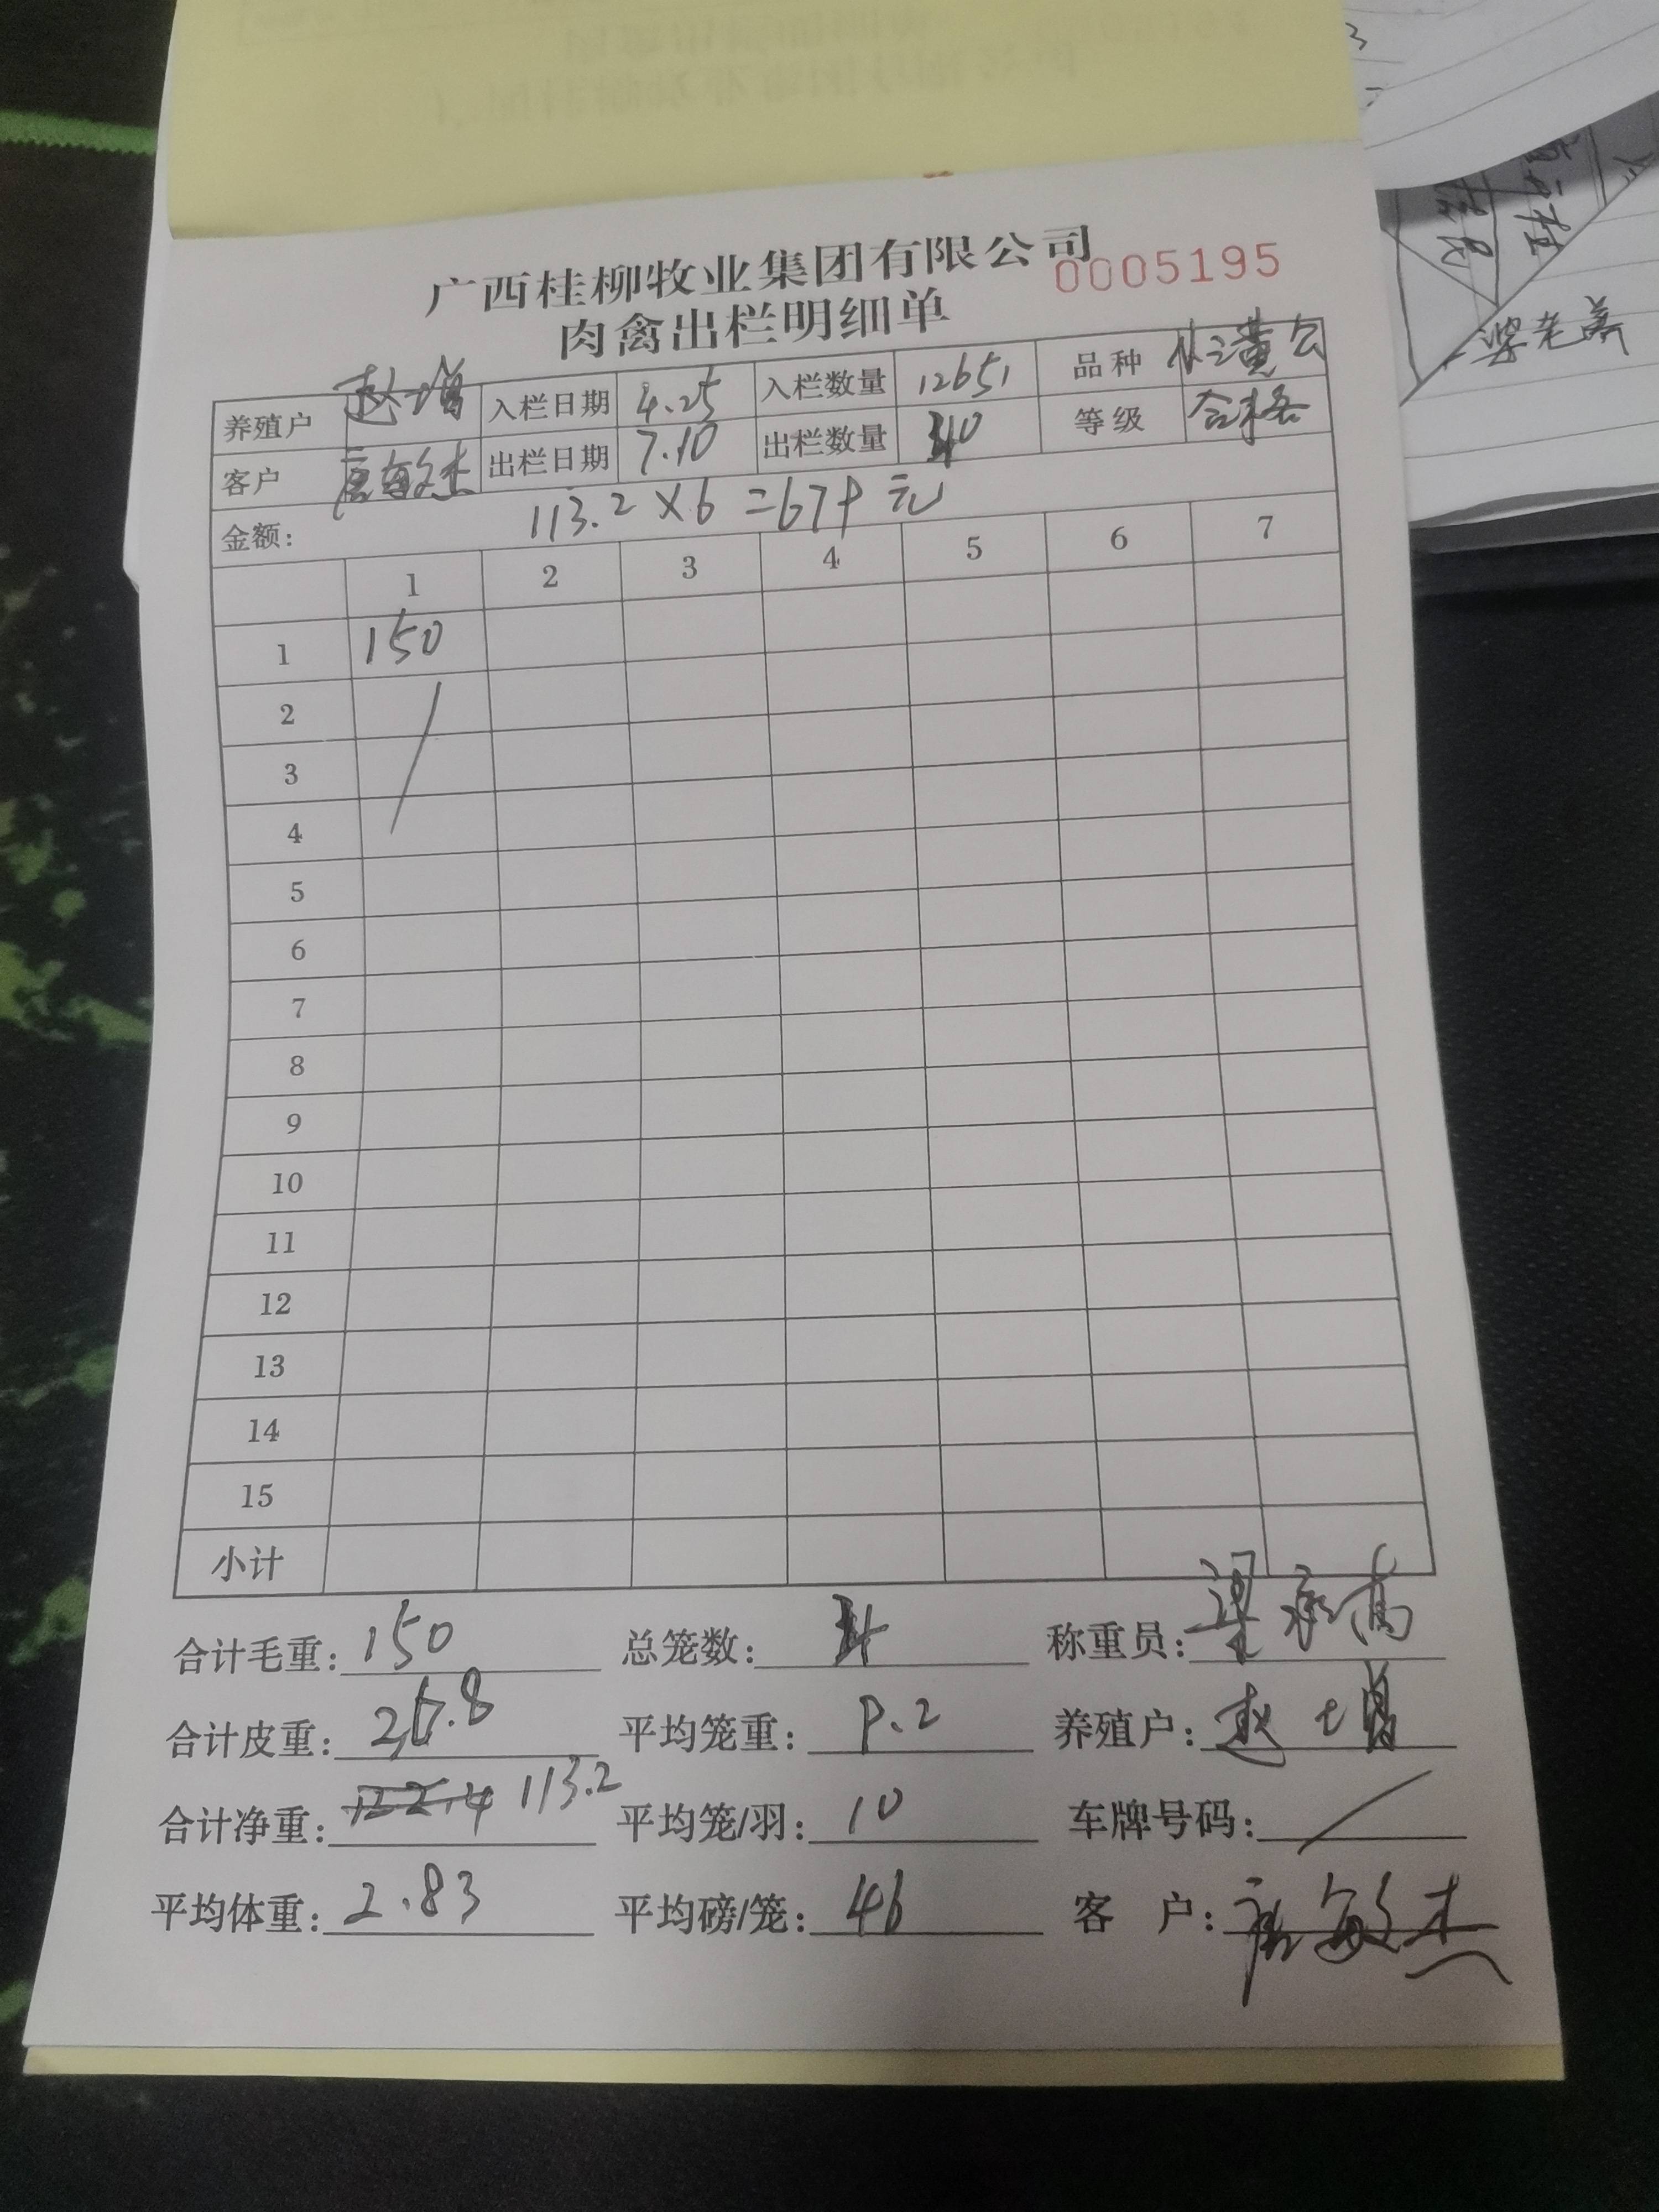 广西桂柳牧业集团有限公司
0005195
肉禽出栏明细单
养殖户 赵增 入栏日期 4.25 入栏数量 12651 品种 黄公
客户 唐敏杰 出栏日期 7.10 出栏数量 40 等级 合格
金额: 113.2×6=679元
1 2 3 4 5 6 7
1 150
2
3
4
5
6
7
8
9
10
11
12
13
14
15
小计
合计毛重: 150 总笼数: 4 称重员: 梁
合计皮重: 36.8 平均笼重: 9.2 养殖户: 赵增
合计净重: 122.4 113.2 平均笼/羽: 10 车牌号码:
平均体重: 2.83 平均磅/笼: 4b 客 户: 唐敏杰